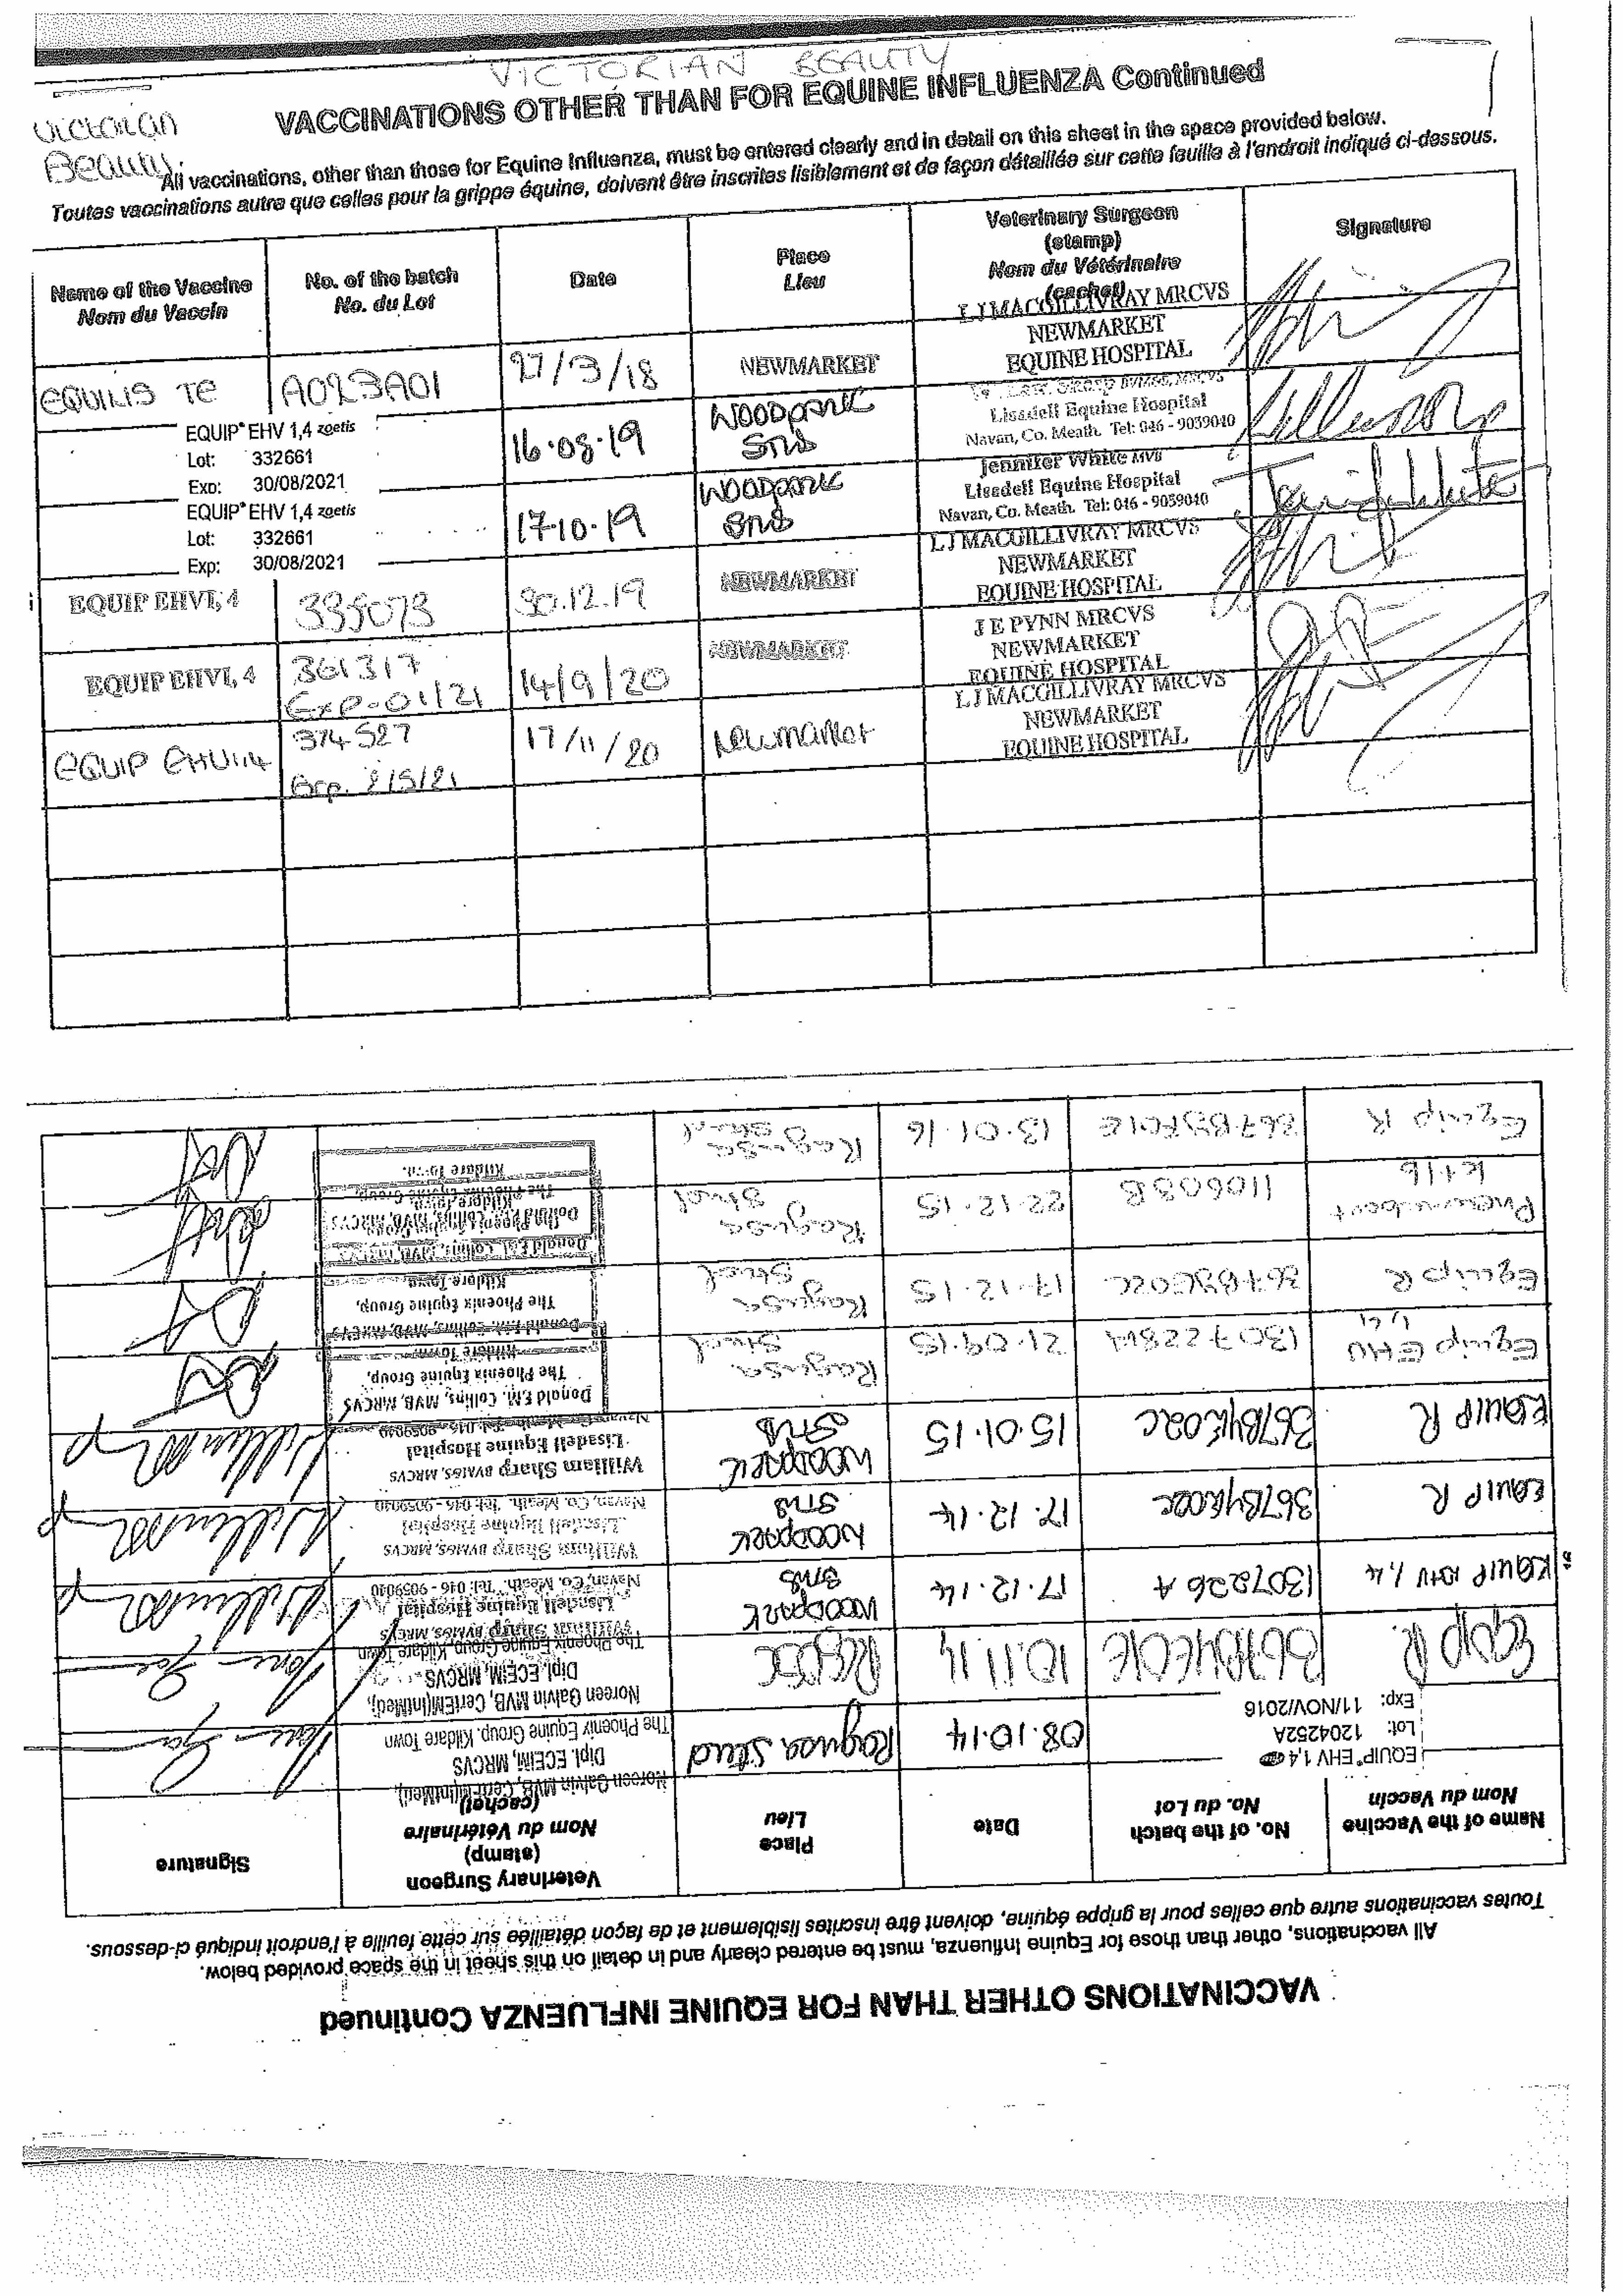 VICTORIAN BEAUTY
Victorian
Beauty.
VACCINATIONS OTHER THAN FOR EQUINE INFLUENZA Continued
All vaccinations, other than those for Equine Influenza, must be entered clearly and in detail on this sheet in the space provided below.
Toutes vaccinations autre que celles pour la grippe équine, doivent être inscrites lisiblement et de façon détaillée sur cette feuille à l'endroit indiqué ci-dessous.
Name of the Vaccine
Nom du Vaccin
No. of the batch
No. du Lot
Date
Place
Lieu
Veterinary Surgeon
(stamp)
Nom du Vétérinaire
(cachet)
Signature
EQUILIS TE
A023A01
27/3/18
NEWMARKET
L J MACGILLIVRAY MRCVS
NEWMARKET
EQUINE HOSPITAL
EQUIP® EHV 1,4 zoetis
Lot: 332661
Exp: 30/08/2021
16.08.19
WOODPARK
STUD
Lisadell Equine Hospital
Navan, Co. Meath. Tel: 046 - 9059040
EQUIP® EHV 1,4 zoetis
Lot: 332661
Exp: 30/08/2021
17.10.19
WOODPARK
STUD
Jennifer White MVB
Lisadell Equine Hospital
Navan, Co. Meath. Tel: 046 - 9059040
Jennifer White
EQUIP EHV1,4
335073
30.12.19
NEWMARKET
L J MACGILLIVRAY MRCVS
NEWMARKET
EQUINE HOSPITAL
EQUIP EHV1,4
361317
Exp-01/21
14/9/20
NEWMARKET
J E PYNN MRCVS
NEWMARKET
EQUINE HOSPITAL
EQUIP EHV1.4
374527
Exp. 2/5/21
17/11/20
Newmarket
L J MACGILLIVRAY MRCVS
NEWMARKET
EQUINE HOSPITAL
VACCINATIONS OTHER THAN FOR EQUINE INFLUENZA Continued
All vaccinations, other than those for Equine Influenza, must be entered clearly and in detail on this sheet in the space provided below.
Toutes vaccinations autre que celles pour la grippe équine, doivent être inscrites lisiblement et de façon détaillée sur cette feuille à l'endroit indiqué ci-dessous.
Name of the Vaccine
Nom du Vaccin
No. of the batch
No. du Lot
Date
Place
Lieu
Veterinary Surgeon
(stamp)
Nom du Vétérinaire
(cachet)
Signature
EQUIP® EHV 1,4
Lot: 1204252A
Exp: 11/NOV/2016
08.10.14
Ragusa Stud
Noreen Galvin MVB, CertEM(IntMed),
Dipl. ECEIM, MRCVS
The Phoenix Equine Group, Kildare Town
10.11.14
Noreen Galvin MVB, CertEM(IntMed),
Dipl. ECEIM, MRCVS
The Phoenix Equine Group, Kildare Town
EQUIP EHV 1,4
1307226 A
17.12.14
WOODPARK
STUD
William Sharp BVM&S, MRCVS
Lisadell Equine Hospital
Navan, Co. Meath. Tel: 046 - 9059040
EQUIP R
367B4E02C
17.12.14
WOODPARK
STUD
William Sharp BVM&S, MRCVS
Lisadell Equine Hospital
Navan, Co. Meath. Tel: 046 - 9059040
EQUIP R
367B4E02C
15.01.15
WOODPARK
STUD
William Sharp BVM&S, MRCVS
Lisadell Equine Hospital
Navan, Co. Meath. Tel: 046 - 9059040
Equip EHV
1,4
1307228A
21.09.15
Ragusa
Stud
Donald F.M. Collins, MVB, MRCVS
The Phoenix Equine Group,
Kildare Town
Equip R
17.12.15
Ragusa
Stud
Donald F.M. Collins, MVB, MRCVS
The Phoenix Equine Group,
Kildare Town
Pneumabort
K+1b
110608B
22.12.15
Ragusa
Stud
Donald F.M. Collins, MVB, MRCVS
The Phoenix Equine Group,
Equip R
367B5F01E
13.01.16
Ragusa
Stud
Kildare Town.